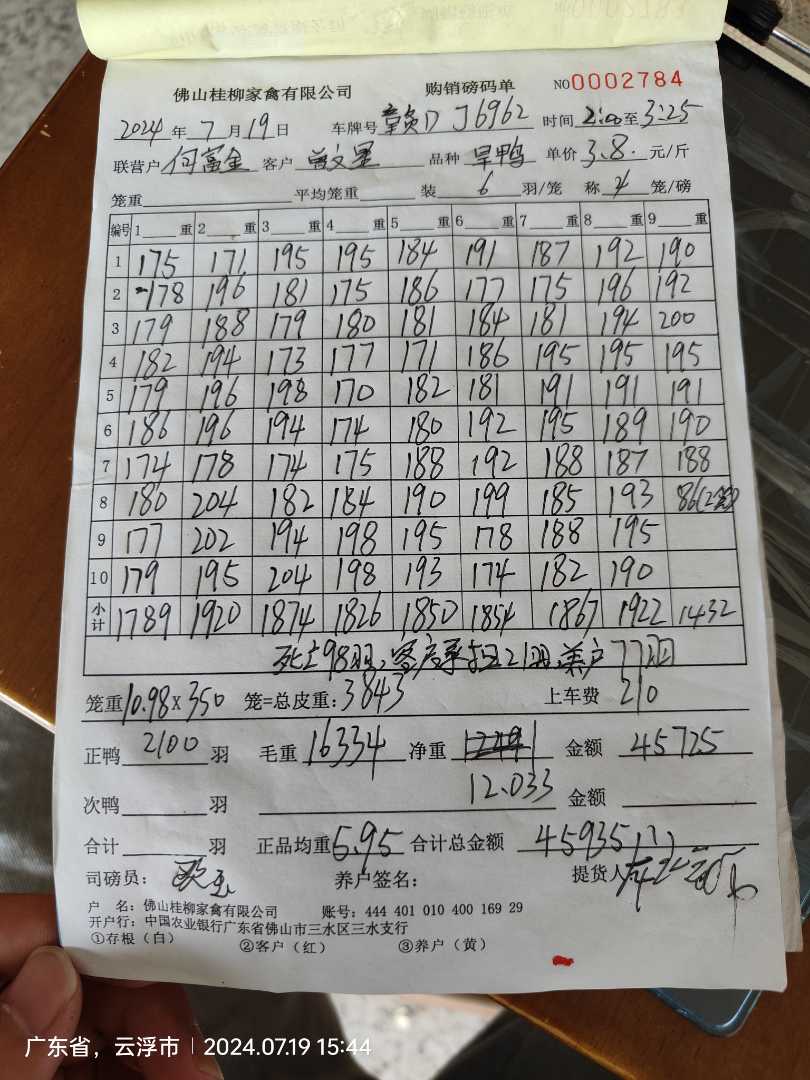 佛山桂柳家禽有限公司 购销磅码单 NO0002784
2024年7月19日 车牌号 赣D J6962 时间 2:00至3:25
联营户 何富金 客户 品种 旱鸭 单价 3.8. 元/斤
笼重 平均笼重 装 6 羽/笼 称 4 笼/磅
编号 1 重 2 重 3 重 4 重 5 重 6 重 7 重 8 重 9 重
1 175 171 195 195 184 191 187 192 190
2 178 196 181 175 186 177 175 196 192
3 179 188 179 180 181 184 181 194 200
4 182 194 173 177 171 186 195 195 195
5 179 196 198 170 182 181 191 191 191
6 186 196 194 174 180 192 195 189 190
7 174 178 174 175 188 192 188 187 188
8 180 204 182 184 190 199 185 193 86(2笼)
9 177 202 194 198 195 178 188 195
10 179 195 204 198 193 174 182 190
小计 1789 1920 1874 1826 1850 1854 1867 1922 1432
死亡98羽,客户承担21羽,养户77羽
笼重10.98×350 笼=总皮重:3843 上车费 210
正鸭 2100 羽 毛重 16334 净重 12491 金额 45725
12.033
次鸭 羽 金额
合计 羽 正品均重 5.95 合计总金额 45935
司磅员: 养户签名: 提货人
户 名:佛山桂柳家禽有限公司 账号:444 401 010 400 169 29
开户行:中国农业银行广东省佛山市三水区三水支行
①存根(白) ②客户(红) ③养户(黄)
广东省,云浮市 2024.07.19 15:44